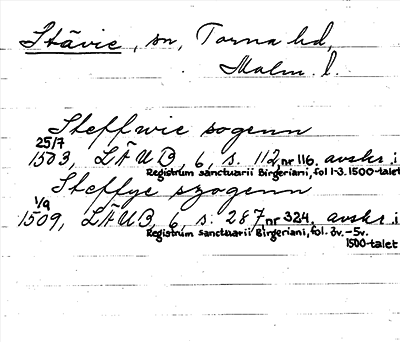 Stävie, sn, Torna hd,
Malm. l.
Steffwie sogenn
25/7
1503, LÄUB, 6, s. 112, nr 116. avskr. i
Registrum sanctuarii Birgeriani, fol 1-3. 1500-talet
Steffye szogenn
1/9
1509, LÄUB, 6, s. 287, nr 324, avskr. i
Registrum sanctuarii Birgeriani, fol. 3v.-5v.
1500-talet